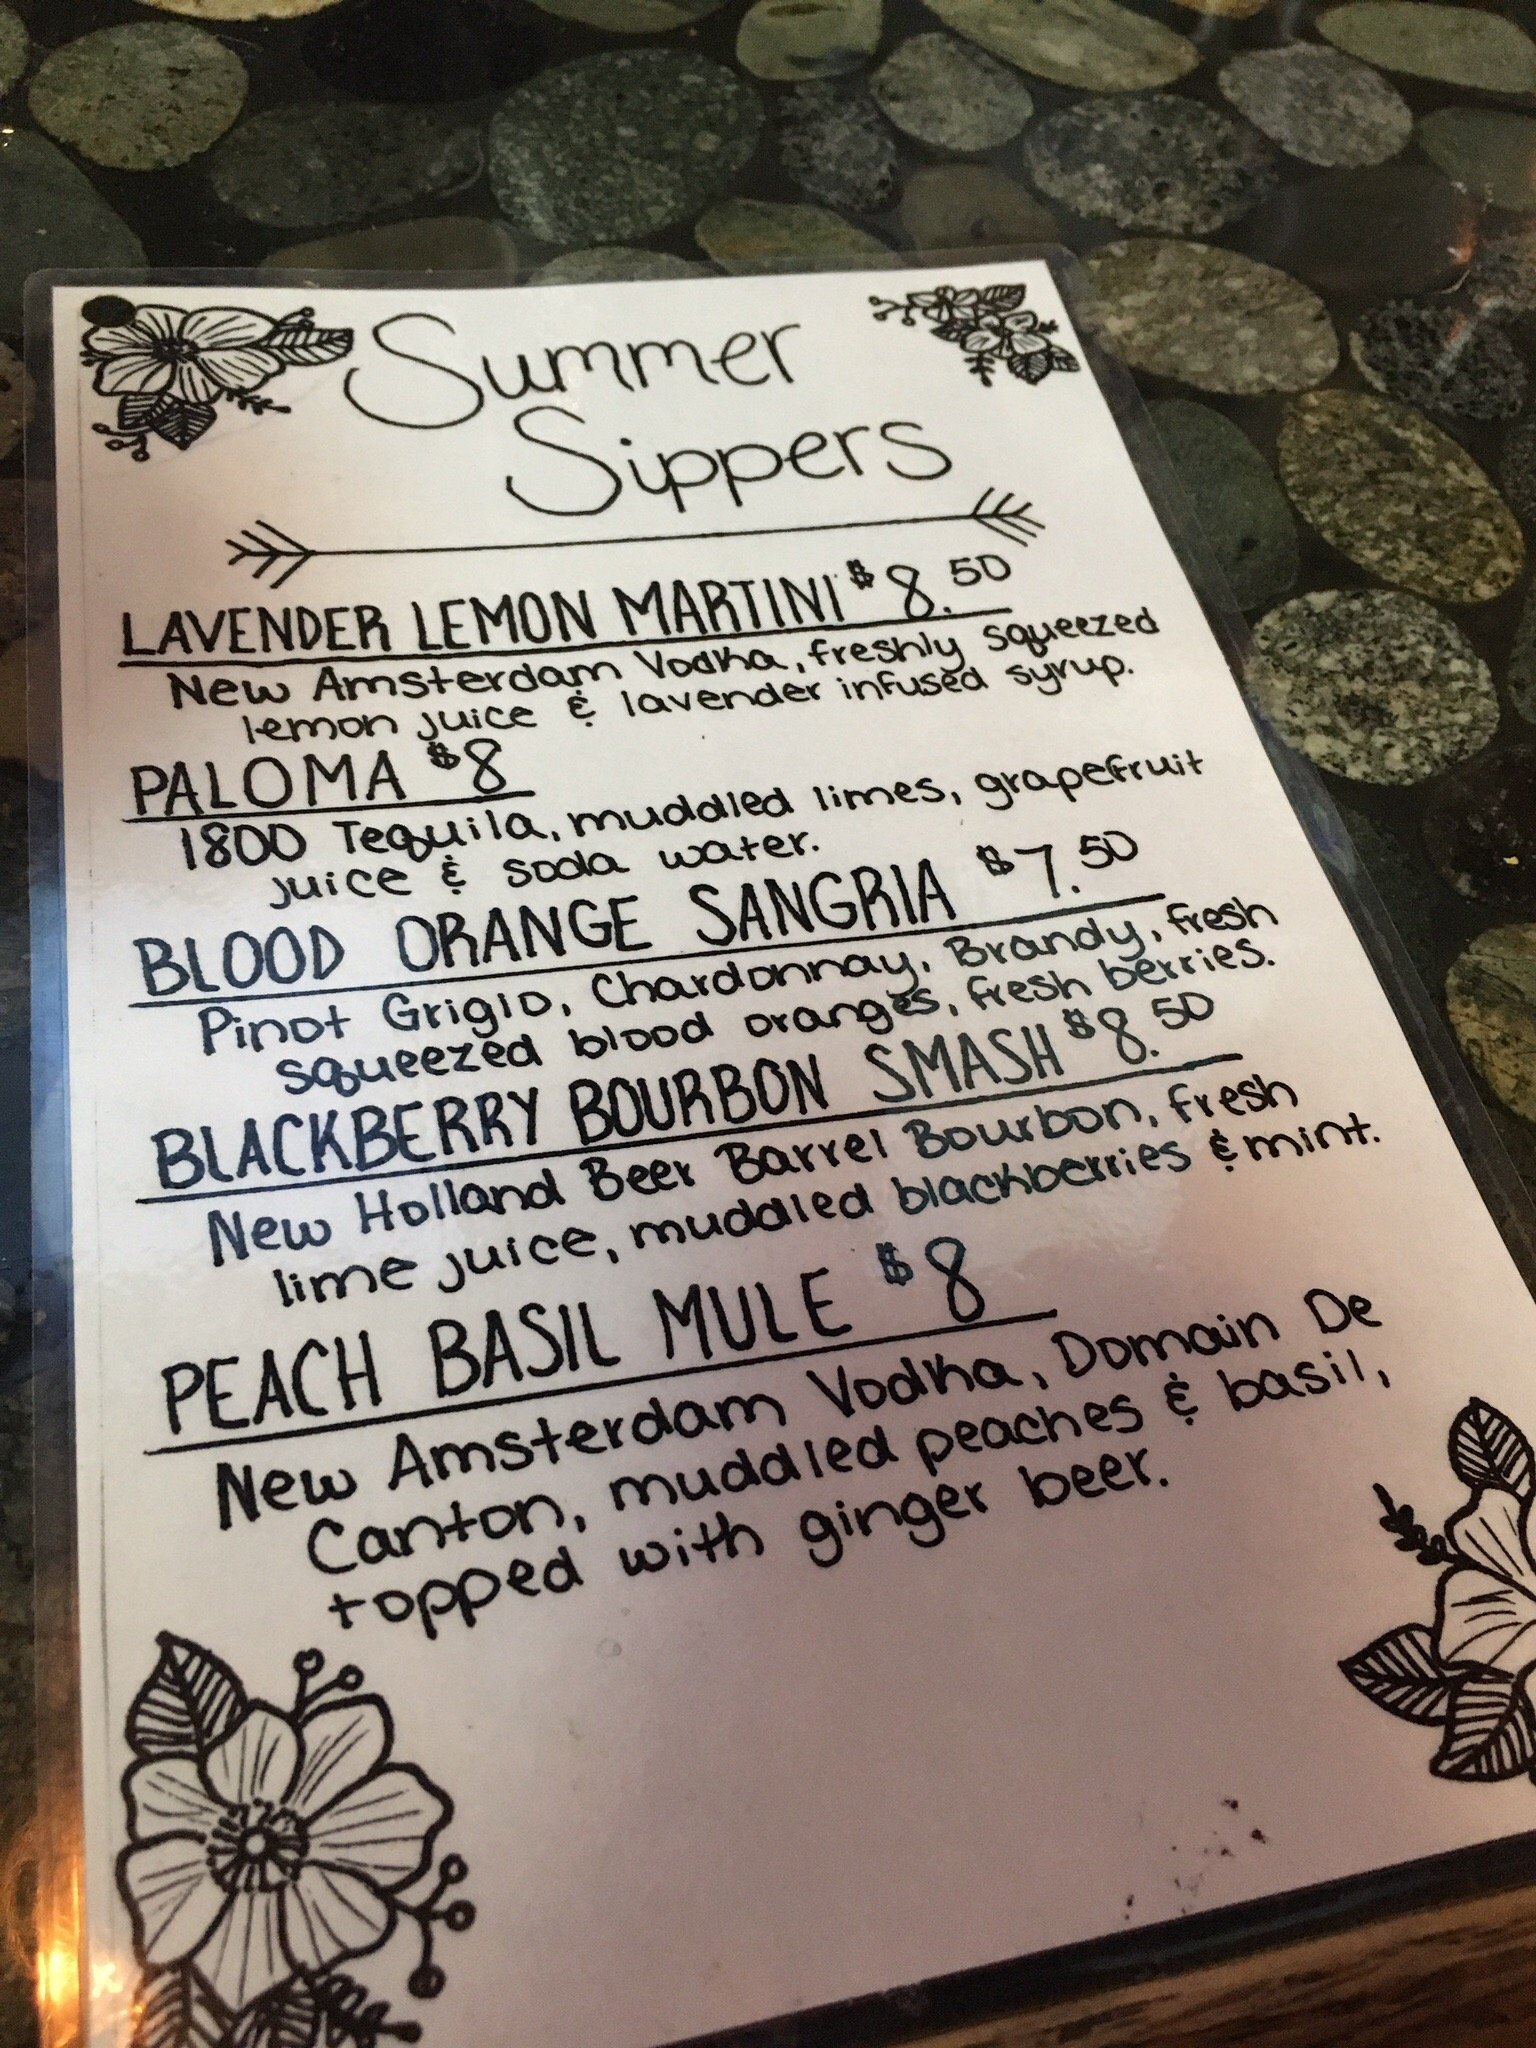 Summer
Sippers
LAVENDER LEMON MARTINI $8.50
New Amsterdam Vodka, freshly squeezed
lemon juice & lavender infused syrup.
PALOMA $8
1800 Tequila, muddled limes, grapefruit
juice & soda water.
BLOOD ORANGE SANGRIA $7.50
Pinot Grigio, Chardonnay, Brandy, fresh
squeezed blood oranges, fresh berries.
BLACKBERRY BOURBON SMASH $8.50
New Holland Beer Barrel Bourbon, fresh
lime juice, muddled blackberries & mint.
PEACH BASIL MULE $8
New Amsterdam Vodka, Domain De
Canton, muddled peaches & basil,
topped with ginger beer.